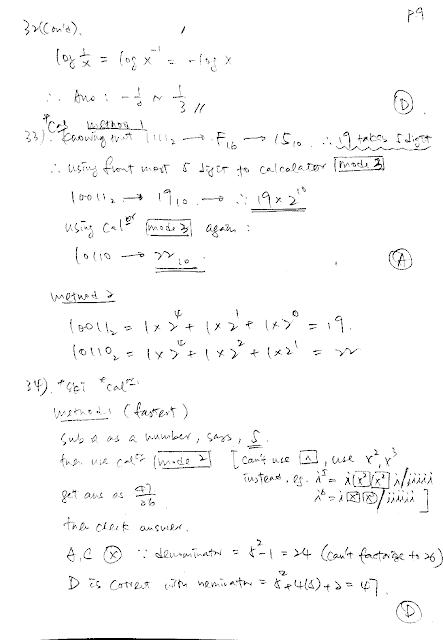 p9
32(Con'd).
log 1/x = log x^-1 = -log x
∴ Ans : -1/6 ~ 1/3 //
(D)
*Cal method 1
33). Knowing that 1111₂ → F₁₆ → 15₁₀. ∴ 19 takes 5 digit
∴ using front most 5 digit to calculator [mode 3]
10011₂ → 19₁₀ → ∴ 19×2^10
using cal^or [mode 3] again :
10110 → 22₁₀.
(A)
method 2
10011₂ = 1×2^4 + 1×2^1 + 1×2^0 = 19.
10110₂ = 1×2^4 + 1×2^2 + 1×2^1 = 22
34). *cal
method 1 (fastest)
sub a as a number, says, 5.
then use cal [mode 2] [can't use [^], use x², x³
instead. eg. i^5 = i[x²][x²] i/iiiii
get ans as 47/26
i^6 = i[x³][x²]/iiiiii ]
then check answer.
A, C (X) ∵ denominator = 5²-1 = 24 (can't factorize to 26)
D is correct with neminator = 5²+4(5)+2 = 47.
(D)